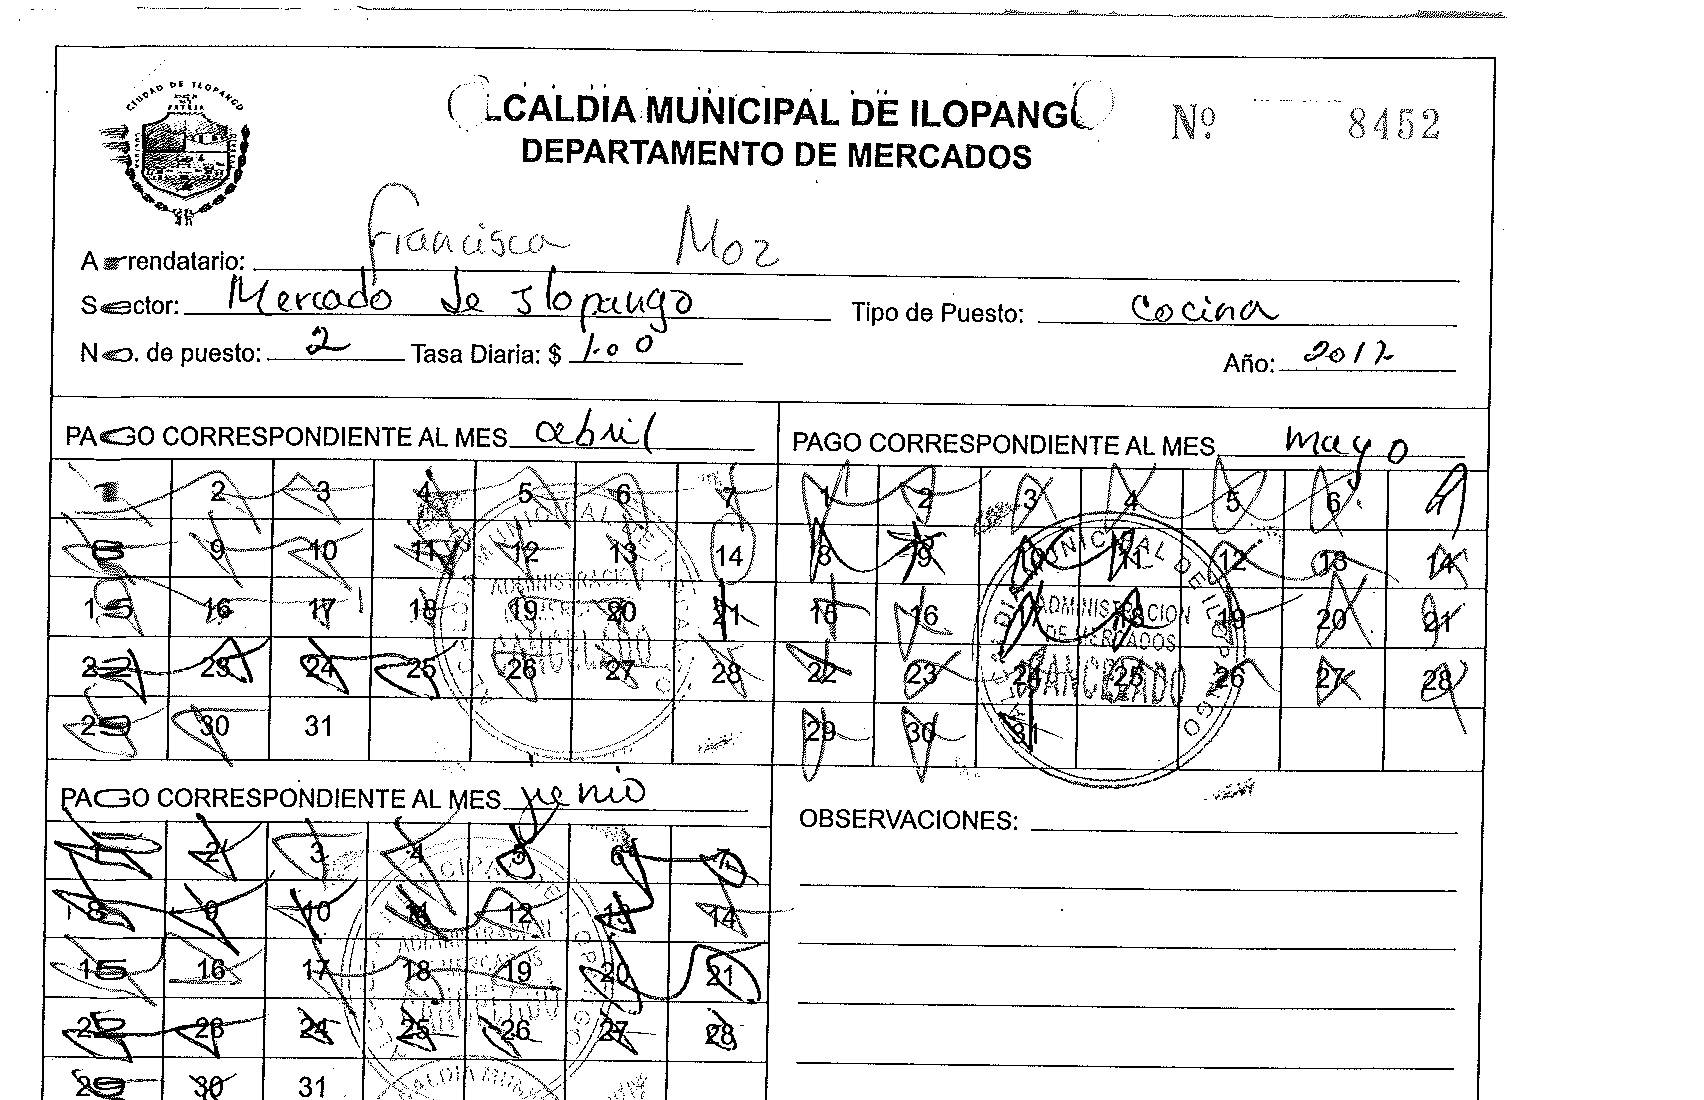 CIUDAD DE ILOPANGO
PATRIA
ALCALDIA MUNICIPAL DE ILOPANGO
DEPARTAMENTO DE MERCADOS
Nº 8452
Arrendatario: Francisca Moz
Sector: Mercado de Ilopango Tipo de Puesto: Cocina
No. de puesto: 2 Tasa Diaria: $ 1.00 Año: 2012
PAGO CORRESPONDIENTE AL MES abril
1 2 3 4 5 6 7
8 9 10 11 12 13 14
15 16 17 18 19 20 21
22 23 24 25 26 27 28
29 30 31
ADMINISTRACION
CANCELADO
PAGO CORRESPONDIENTE AL MES mayo
1 2 3 4 5 6 7
8 9 10 11 12 13 14
15 16 17 18 19 20 21
22 23 24 25 26 27 28
29 30 31
ALCALDIA MUNICIPAL DE ILOPANGO
ADMINISTRACION
DE MERCADOS
CANCELADO
PAGO CORRESPONDIENTE AL MES junio
1 2 3 4 5 6 7
8 9 10 11 12 13 14
15 16 17 18 19 20 21
22 23 24 25 26 27 28
29 30 31
ADMINISTRACION
DE MERCADOS
CANCELADO
OBSERVACIONES: